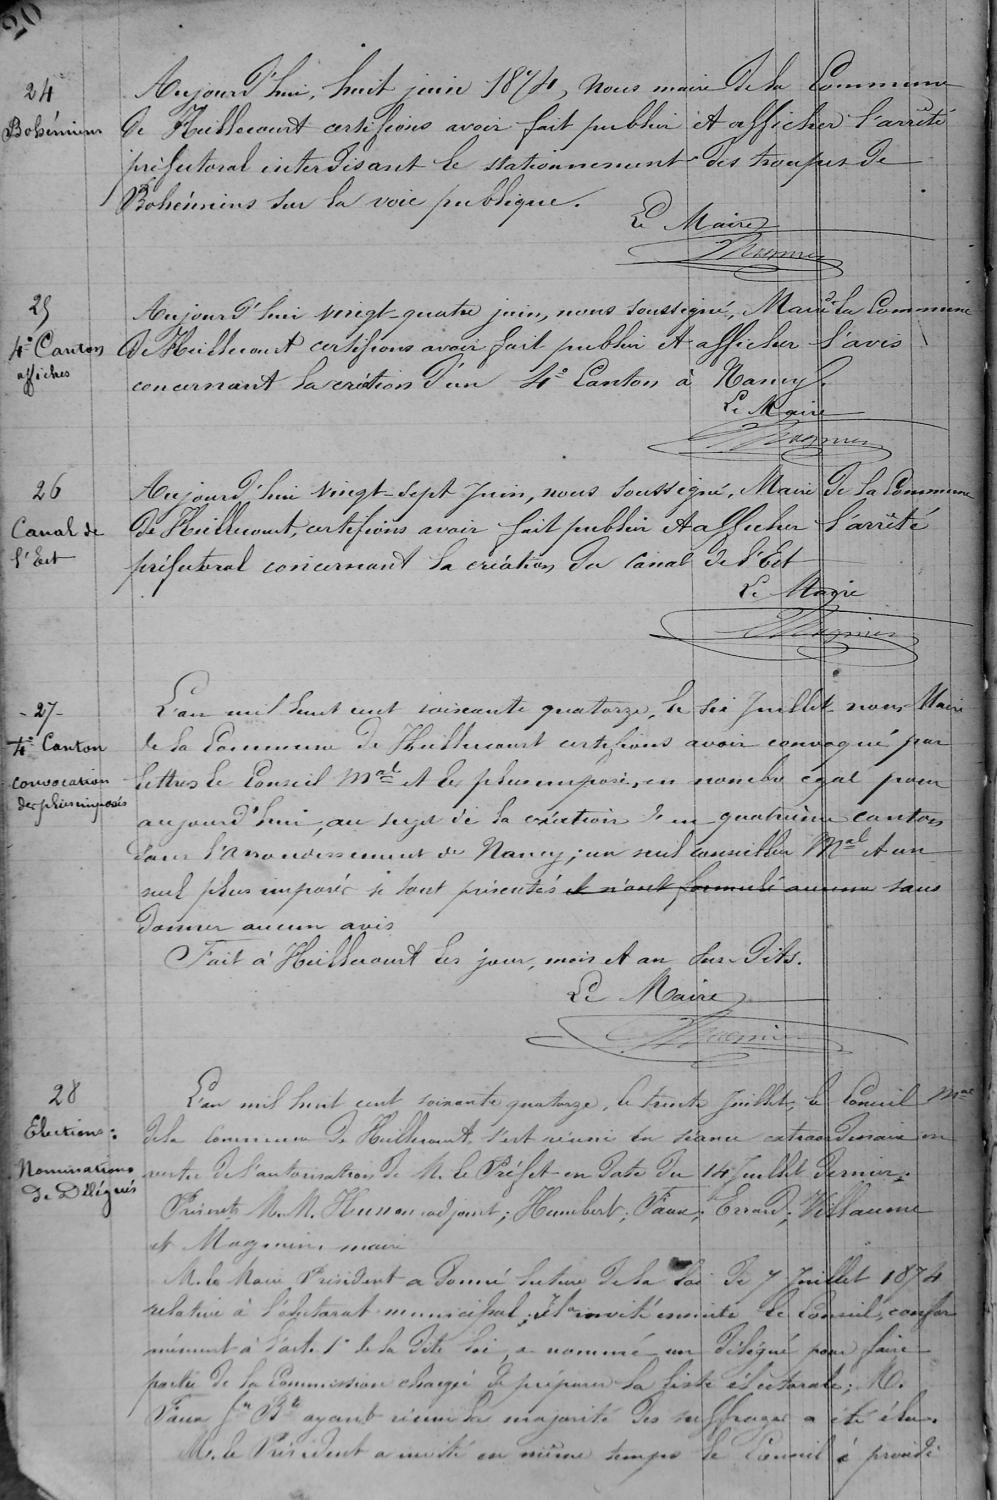 20
24
Bohémiens
Aujourd'hui, huit juin 1874, nous maire de la Commune
de Heillecourt certifions avoir fait publier et afficher l'arrêté
préfectoral interdisant le stationnement des troupes de
Bohémiens sur la voie publique.
Le Maire
Magnier
25
4e Canton
affiches
Aujourd'hui vingt-quatre juin, nous soussigné, Maire de la Commune
de Heillecourt certifions avoir fait publier et afficher l'avis
concernant la création d'un 4e Canton à Nancy.
Le Maire
Magnier
26
Canal de
l'Est
Aujourd'hui vingt-sept Juin, nous soussigné, Maire de la Commune
de Heillecourt, certifions avoir fait publier et afficher l'arrêté
préfectoral concernant la création du Canal de l'Est
Le Maire
Magnier
-27-
4e Canton
convocation
des plus imposés
L'an mil huit cent soixante quatorze, le six Juillet nous Maire
de la Commune de Heillecourt certifions avoir convoqué par
lettres le Conseil Mal et les plus imposés, en nombre égal pour
aujourd'hui, au sujet de la création d'un quatrième canton
dans l'arrondissement de Nancy; un seul conseiller Mal et un
seul plus imposé se sont présentés et n'ont formulé aucun sans
donner aucun avis
Fait à Heillecourt les jour, mois et an sus-dits.
Le Maire
Magnier
28
Elections:
Nominations
de Délégués
L'an mil huit cent soixante quatorze, le trente Juillet, le Conseil Mal
de la Commune de Heillecourt s'est réuni en séance extraordinaire en
vertu de l'autorisation de M. le Préfet en date du 14 Juillet dernier.
Présents M.M. Husson adjoint; Humbert; Faux; Errard; Villaume
et Magnier, maire
M. le Maire Président a donné lecture de la loi du 7 Juillet 1874
relative à l'électorat municipal; Il a invité ensuite le Conseil, confor
mément à l'art. 1er de la dite loi, a nommé un délégué pour faire
partie de la Commission chargée de préparer la liste électorale; M.
Faux Jn Bte ayant réuni la majorité des suffrages a été élu.
M. le Président a invité en même temps le Conseil à procéd